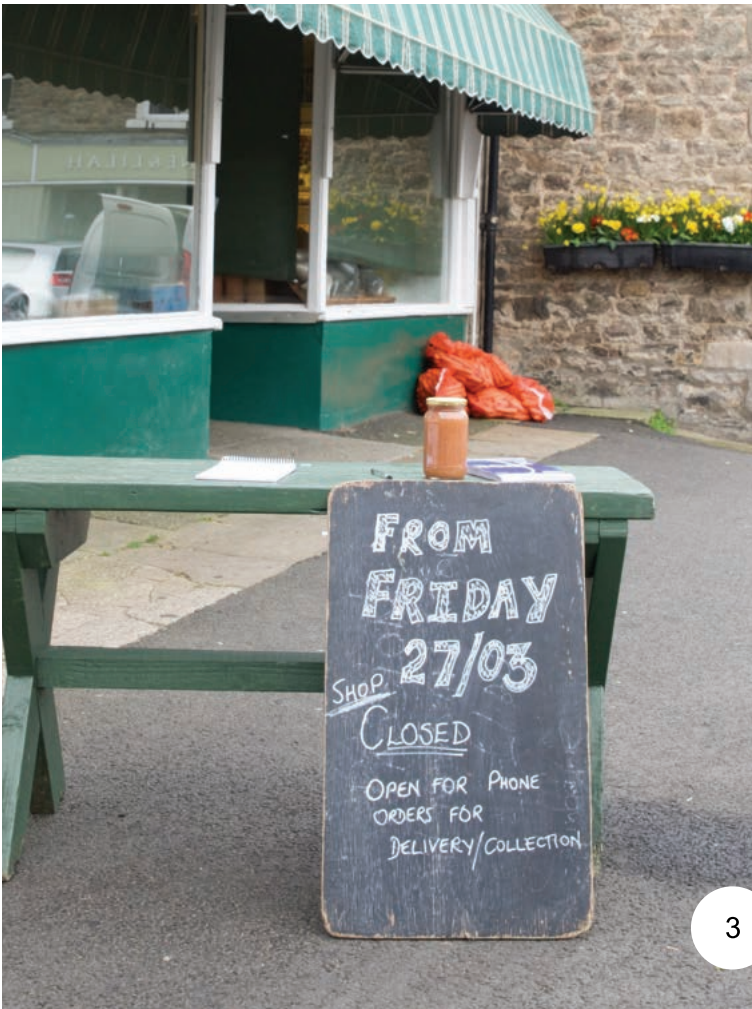 FROM
FRIDAY
27/03
SHOP
CLOSED
OPEN FOR PHONE
ORDERS FOR
DELIVERY/COLLECTION
3